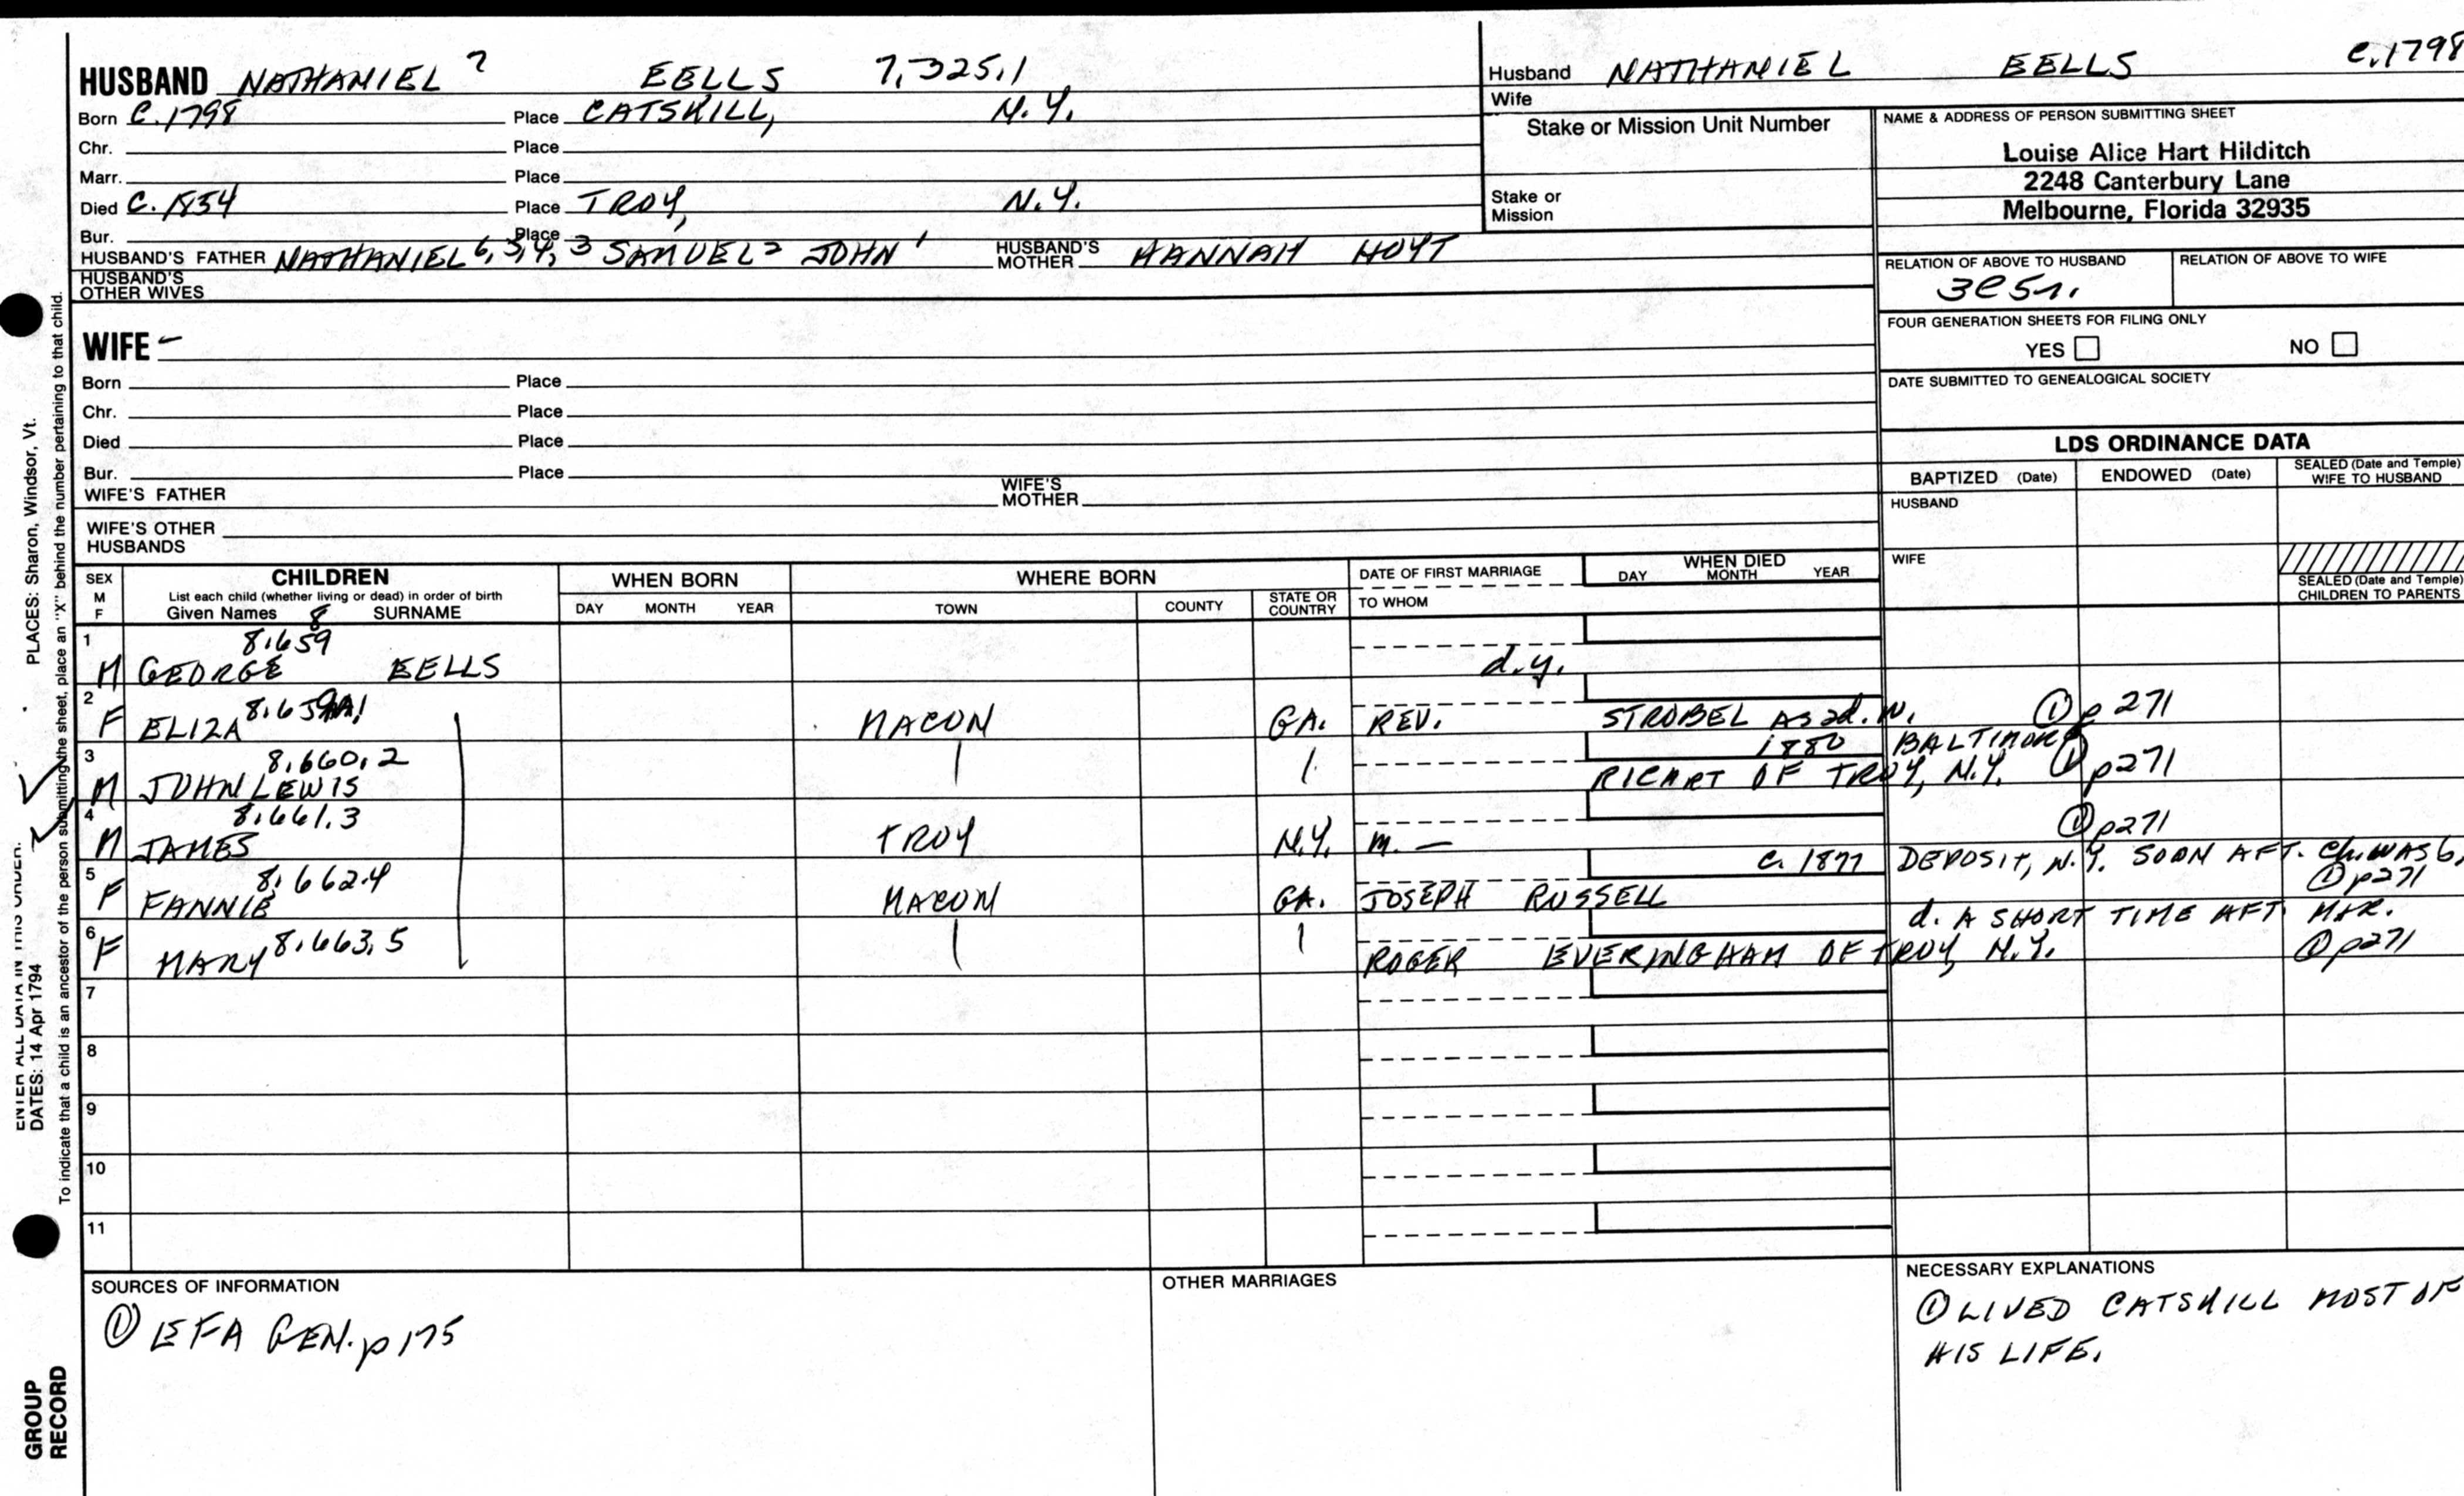 HUSBAND NATHANIEL 7 EELLS 7,325,1
Born C. 1798 Place CATSKILL, N.Y.
Chr. Place
Marr. Place
Died C. 1854 Place TROY, N.Y.
Bur. Place
HUSBAND'S FATHER NATHANIEL 6,5,4,3 SAMUEL 2 JOHN 1 HUSBAND'S MOTHER HANNAH HOYT
HUSBAND'S OTHER WIVES
WIFE –
Born Place
Chr. Place
Died Place
Bur. Place
WIFE'S FATHER WIFE'S MOTHER
WIFE'S OTHER HUSBANDS
Husband NATHANIEL EELLS C. 1798
Wife
Stake or Mission Unit Number
Stake or Mission
NAME & ADDRESS OF PERSON SUBMITTING SHEET
Louise Alice Hart Hilditch
2248 Canterbury Lane
Melbourne, Florida 32935
RELATION OF ABOVE TO HUSBAND RELATION OF ABOVE TO WIFE
3C5r.
FOUR GENERATION SHEETS FOR FILING ONLY
YES NO
DATE SUBMITTED TO GENEALOGICAL SOCIETY
LDS ORDINANCE DATA
BAPTIZED (Date) ENDOWED (Date) SEALED (Date and Temple) WIFE TO HUSBAND
HUSBAND
WIFE
SEALED (Date and Temple) CHILDREN TO PARENTS
SEX M F
CHILDREN
List each child (whether living or dead) in order of birth
Given Names 8 SURNAME
WHEN BORN
DAY MONTH YEAR
WHERE BORN
TOWN COUNTY STATE OR COUNTRY
DATE OF FIRST MARRIAGE
TO WHOM
WHEN DIED
DAY MONTH YEAR
1 8,659
M GEORGE EELLS d.y.
2 8,659A1
F ELIZA MACON GA. REV. STROBEL AS 2d. W. ① p 271
3 8,660,2 1880 BALTIMORE
M JOHN LEWIS RICART OF TROY, N.Y. ① p271
4 8,661,3 ① p271
M JAMES TROY N.Y. m. —
5 8,662,4 C. 1877 DEPOSIT, N.Y. SOON AFT. Ch. WAS b,
F FANNIE MACON GA. JOSEPH RUSSELL ① p271
6 8,663,5 d. A SHORT TIME AFT. MAR.
F MARY ROGER EVERINGHAM OF TROY, N.Y. ① p271
7
8
9
10
11
SOURCES OF INFORMATION
① EFA GEN. p 175
OTHER MARRIAGES
NECESSARY EXPLANATIONS
① LIVED CATSKILL MOST OF
HIS LIFE.
ENTER ALL DATA IN THIS ORDER:
DATES: 14 Apr 1794
PLACES: Sharon, Windsor, Vt.
To indicate that a child is an ancestor of the person submitting the sheet, place an "X" behind the number pertaining to that child.
GROUP
RECORD